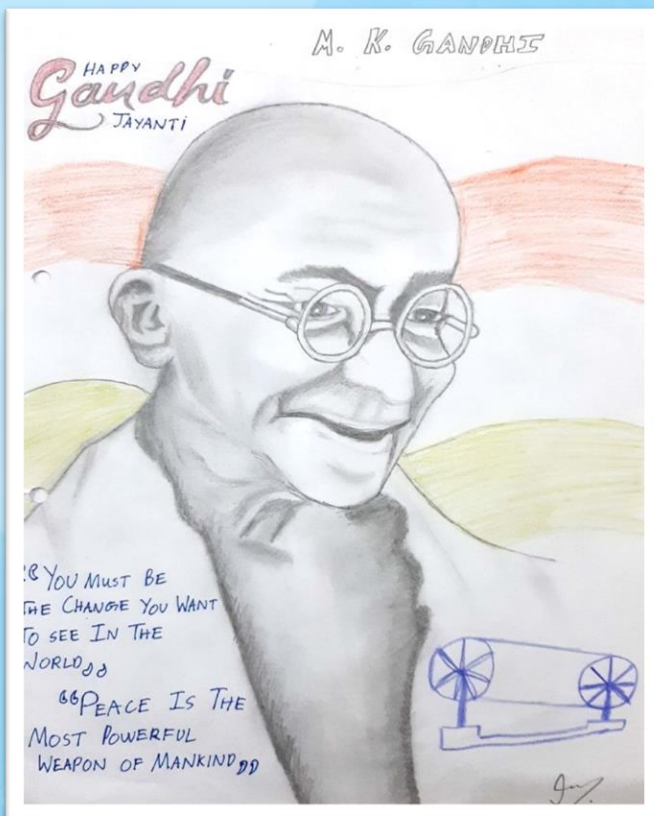 M. K. GANDHI
HAPPY
Gandhi
JAYANTI
“YOU MUST BE
THE CHANGE YOU WANT
TO SEE IN THE
WORLD„
“PEACE IS THE
MOST POWERFUL
WEAPON OF MANKIND„